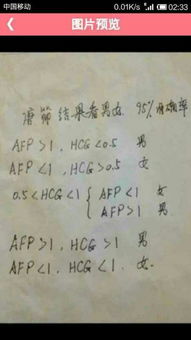 中国移动 0.01K/s 02:33
图片预览
唐筛结果看男女. 95%的准确率
AFP>1, HCG<0.5 男
AFP<1, HCG>0.5 女
0.5<HCG<1 { AFP<1 女
AFP>1 男
AFP>1, HCG>1 男
AFP<1, HCG<1. 女.